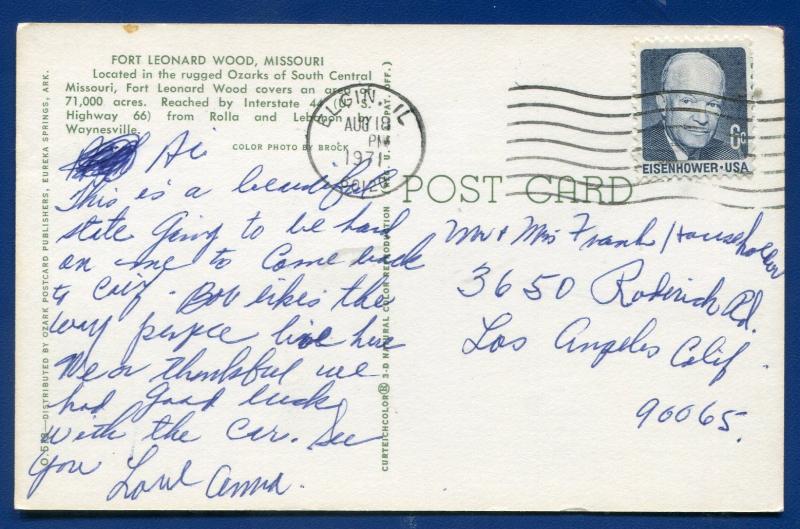 FORT LEONARD WOOD, MISSOURI
Located in the rugged Ozarks of South Central
Missouri, Fort Leonard Wood covers an area of
71,000 acres. Reached by Interstate 44 (U. S.
Highway 66) from Rolla and Lebanon by
Waynesville.
COLOR PHOTO BY BROCK
Hi
This is a beautiful
state going to be hard
on me to come back
to Calif. Bob likes the
way people live here
We r thankful we
had good luck
with the car. See
you Love Anna.
O.513—DISTRIBUTED BY OZARK POSTCARD PUBLISHERS, EUREKA SPRINGS, ARK.
CURTEICHCOLOR® 3-D NATURAL COLOR REPRODUCTION (REG. U. S. PAT. OFF.)
ELGIN, IL
AUG 18
PM
1971
60120
6c
EISENHOWER·USA
POST CARD
Mr & Mrs Frank Householder
3650 Roderick Rd.
Los Angeles Calif.
90065.